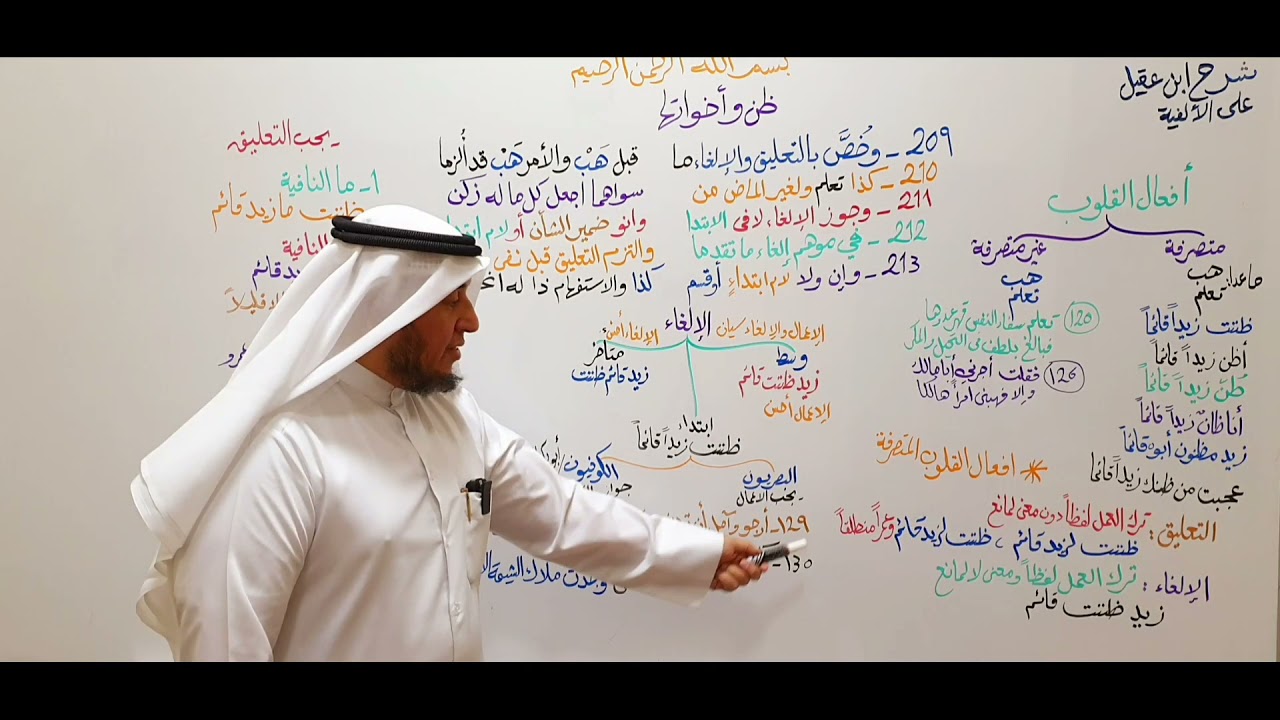 شرح ابن عقيل
على الألفية
بسم الله الرحمن الرحيم
ظن وأخواتها
209 - وخُصَّ بالتعليق والإلغاء ما قبل هَبْ والأمر هَبْ قد أُلزما
210 - كذا تعلم ولغير الماض من سواهما اجعل كل ما له زكن
211 - وجوز الإلغاء لا في الابتدا وانو ضمير الشأن أو لام ابتدا
212 - في موهم إلغاء ما تقدما والتزم التعليق قبل نفي
213 - وإن ولا لام ابتداءٍ أو قسم كذا والاستفهام ذا له
أفعال القلوب
متصرفة
ماعدا: هب
تعلم
غير متصرفة
هب
تعلم
ظننت زيداً قائماً
أظن زيداً قائماً
ظُنَّ زيداً قائماً
أنا ظانٌ زيداً قائماً
زيد مظنون أبوه قائماً
عجبت من ظنك زيداً قائماً
120 تعلم شفاء النفس قهر عدوها
فبالغ بلطف في التحيل والمكر
126 فقلت أجرني أبا مالك
وإلا فهبني امرأ هالكا
* افعال القلوب المتصرفة
التعليق: ترك العمل لفظاً دون معنى لمانع
ظننت لزيد قائم ، ظننت لزيد قائم وعمراً منطلقاً
الإلغاء: ترك العمل لفظاً ومعنى لا لمانع
زيد ظننت قائم
الإلغاء
الإعمال والإلغاء سيان
وسط
زيد ظننت قائم
الإعمال أحسن
الإلغاء أحسن
متأخر
زيد قائم ظننت
ابتداء
ظننت زيداً قائماً
البصريون
يجب الإعمال
الكوفيون
129 - أرجو وآمل أن
130 -
وجدت ملاك الشيمة
يجب التعليق
1 - ما النافية
ظننت ما زيد قائم
النافية
قائم
إلا قليلاً
عمرو